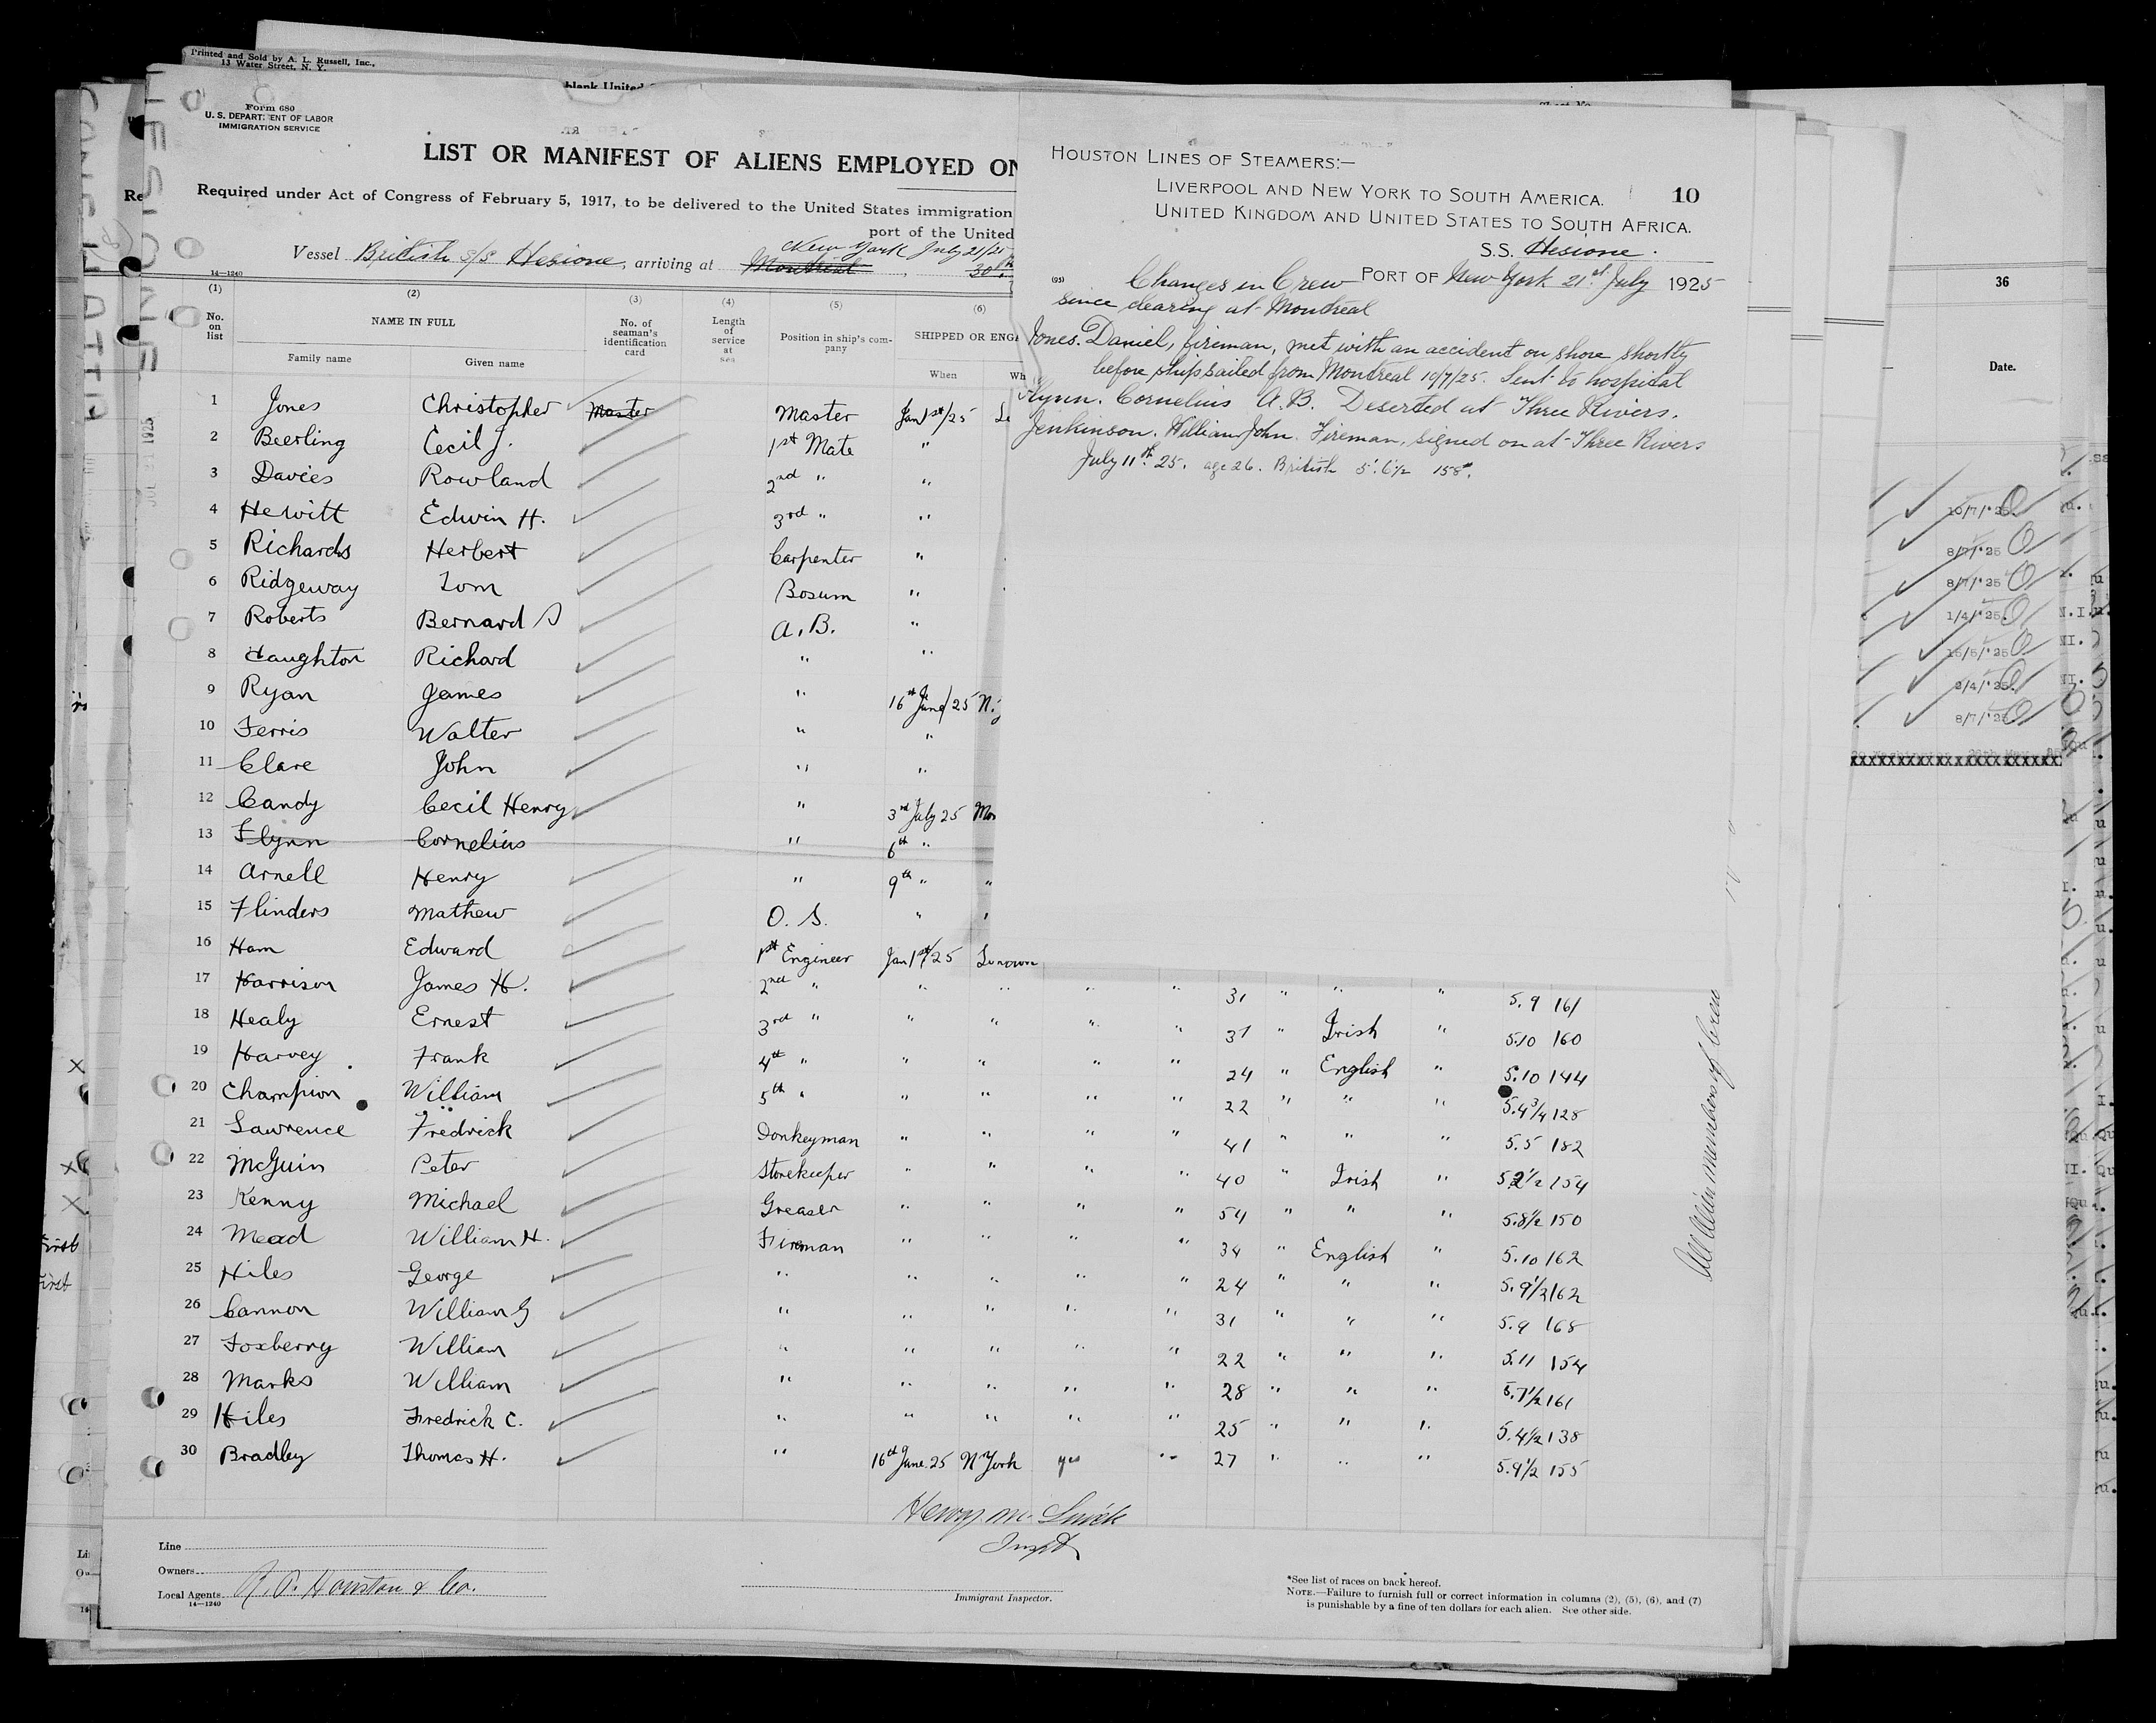 Printed and Sold by A. L. Russell, Inc.,
13 Water Street, N. Y.
blank United
Form 680
U. S. DEPARTMENT OF LABOR
IMMIGRATION SERVICE
LIST OR MANIFEST OF ALIENS EMPLOYED ON
Required under Act of Congress of February 5, 1917, to be delivered to the United States immigration
port of the United
New York July 21/25
Vessel British s/s Hesione, arriving at Montreal, 30th
14—1240
(1) (2) (3) (4) (5) (6)
No. on list NAME IN FULL No. of seaman's identification card Length of service at sea Position in ship's company SHIPPED OR ENGA
Family name Given name When Wh
1 Jones Christopher Master Master Jan 1st/25
2 Beerling Cecil J. 1st Mate "
3 Davies Rowland 2nd " "
4 Hewitt Edwin H. 3rd " "
5 Richards Herbert Carpenter "
6 Ridgeway Tom Bosum "
7 Roberts Bernard S A.B. "
8 Haughton Richard " "
9 Ryan James " 16th June/25 N.
10 Ferris Walter " "
11 Clare John " "
12 Candy Cecil Henry " 3rd July 25 Mon
13 Flynn Cornelius " 6th "
14 Arnell Henry " 9th " "
15 Flinders Mathew O. S. " "
16 Ham Edward 1st Engineer Jan 1st/25
17 Harrison James H. 2nd " " " " " 31 " " " 5.9 161
18 Healy Ernest 3rd " " " " " 37 " Irish " 5.10 160
19 Harvey Frank 4th " " " " " 24 " English " 5.10 144
20 Champion William 5th " " " " " 22 " " " 5.4 3/4 128
21 Lawrence Fredrick Donkeyman " " " " 41 " " " 5.5 182
22 McGuin Peter Storekeeper " " " " 40 " Irish " 5 2 1/2 154
23 Kenny Michael Greaser " " " " 54 " " " 5.8 1/2 150
24 Mead William H. Fireman " " " " 34 " English " 5.10 162
25 Hiles George " " " " " 24 " " " 5.9 1/2 162
26 Cannon William G " " " " " 31 " " " 5.9 168
27 Foxberry William " " " " " 22 " " " 5.11 154
28 Marks William " " " " " 28 " " " 5.7 1/2 161
29 Hiles Fredrick C. " " " " " 25 " " " 5.4 1/2 138
30 Bradley Thomas H. " 16th June. 25 N York yes " 27 " " " 5.9 1/2 155
Line
Owners
Local Agents R. P. Houston & Co.
14—1240
Immigrant Inspector.
*See list of races on back hereof.
NOTE.—Failure to furnish full or correct information in columns (2), (5), (6), and (7)
is punishable by a fine of ten dollars for each alien. See other side.
HOUSTON LINES OF STEAMERS:—
LIVERPOOL AND NEW YORK TO SOUTH AMERICA. 10
UNITED KINGDOM AND UNITED STATES TO SOUTH AFRICA.
S.S. Hesione.
(95) Changes in Crew PORT OF New York 21st July 1925
since clearing at Montreal
Jones. Daniel, fireman, met with an accident on shore shortly
before ship sailed from Montreal 10/7/25. Sent to hospital
Flynn. Cornelius A.B. Deserted at Three Rivers.
Jenkinson. William John. Fireman, signed on at Three Rivers
July 11th 25. age 26. British 5'.6 1/2 158#.
All alien members of Crew
36
Date.
10/7/'25
8/7/'25
8/7/'25
1/4/'25
15/5/'25
2/4/'25
8/7/'25